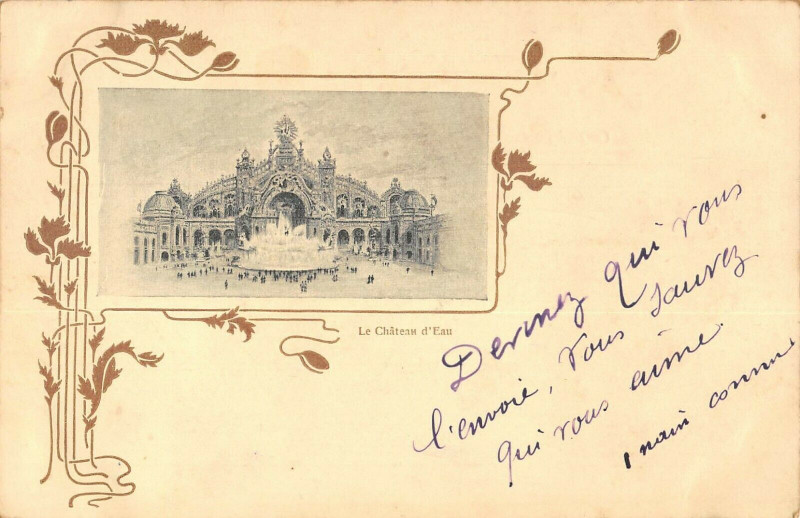 Le Château d'Eau
Devinez qui vous
l'envoie, vous saurez
qui vous aime.
1 main connue